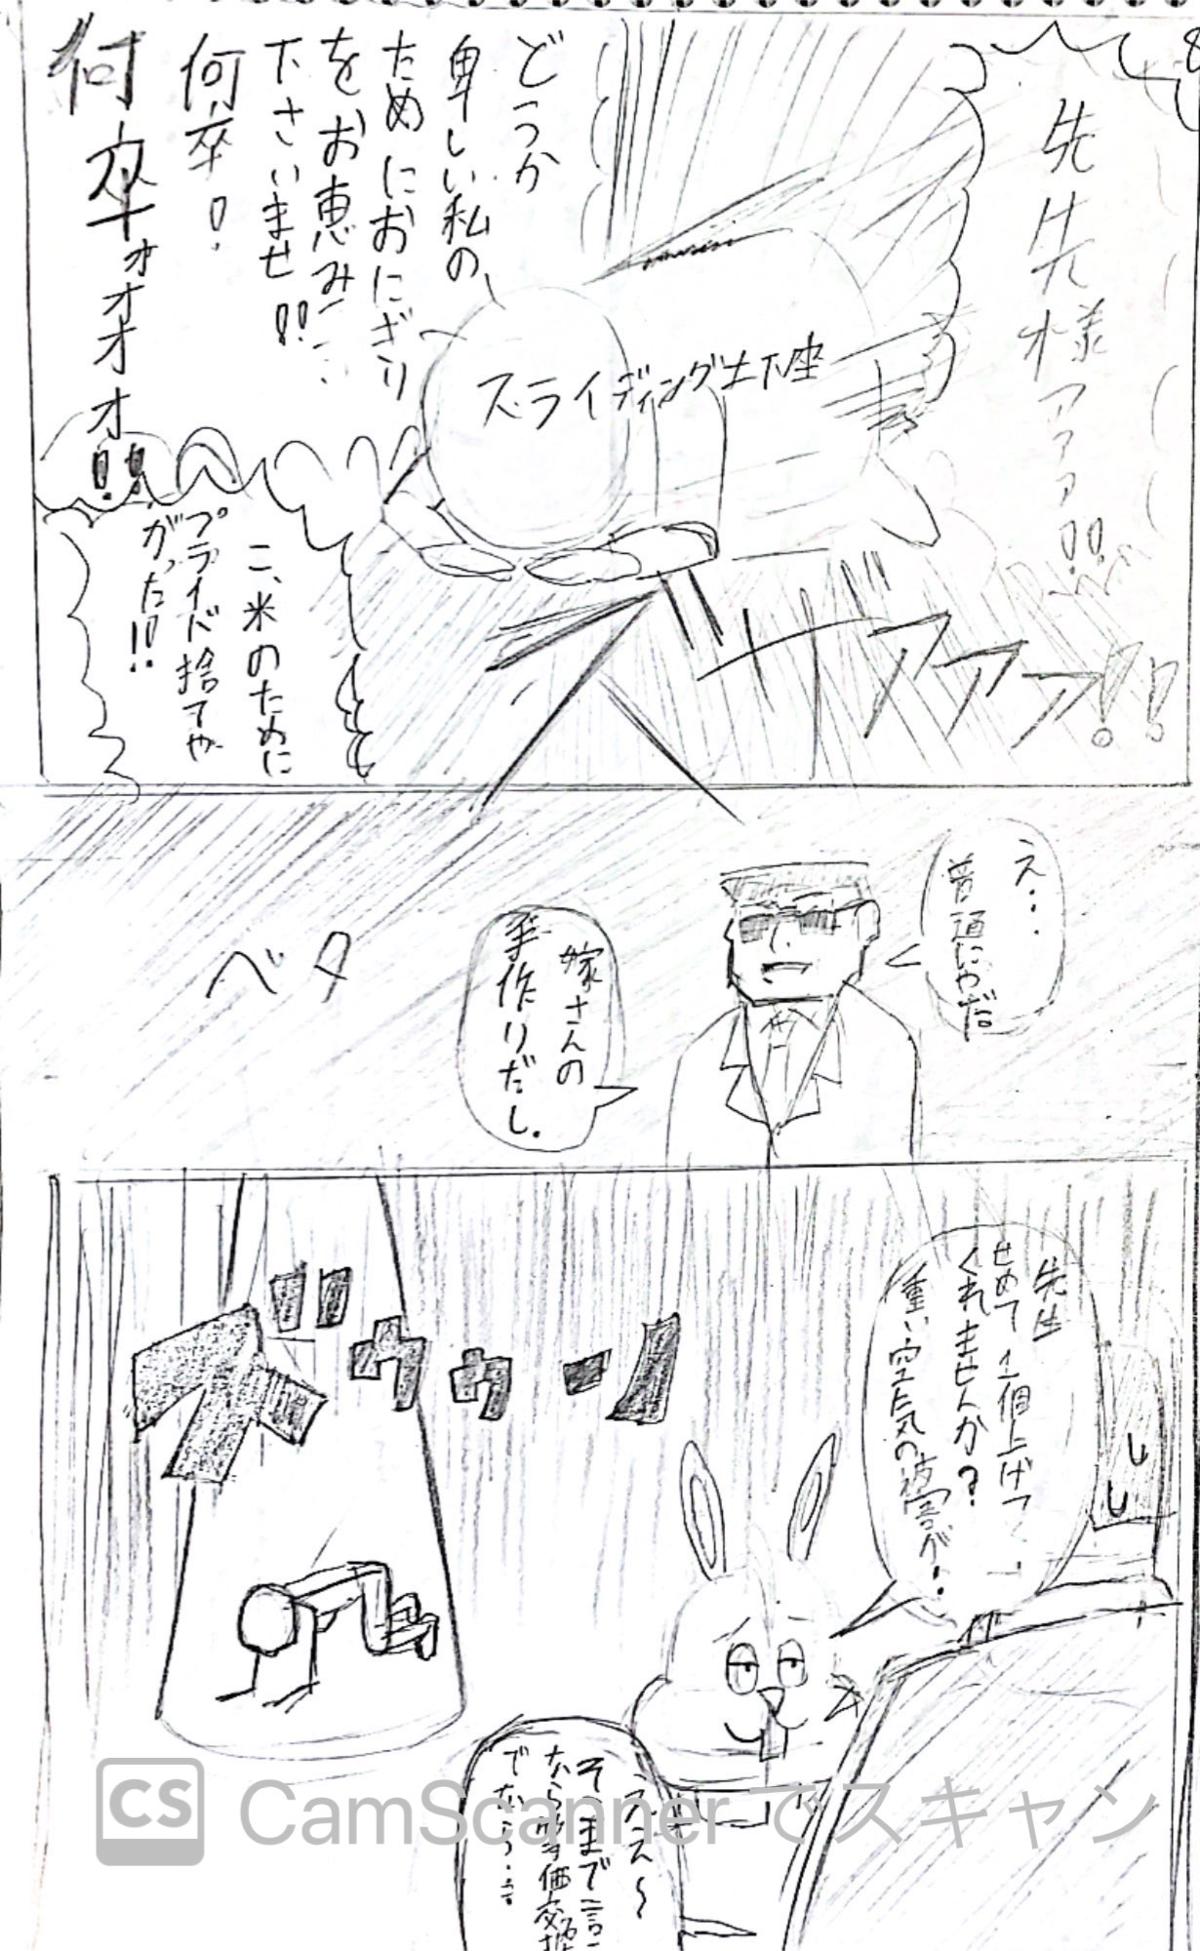 先生様アァァ!!
どうか
卑しい私の
ためにおにぎり
をお恵み
下さいませ!!
何卒!
何卒ォォオオオ!!
スライディング土下座
ザァァァ!!
こ、米のために
プライド捨てや
がった!!
え..
普通にやだ
嫁さんの
手作りだし.
ベタ
先生
せめて1個上げて
くれませんか?
重い空気の被害が..
ズウウーン
ええ〜
そこまで言う
なら等価交換
でなら...
CS CamScannerでスキャン